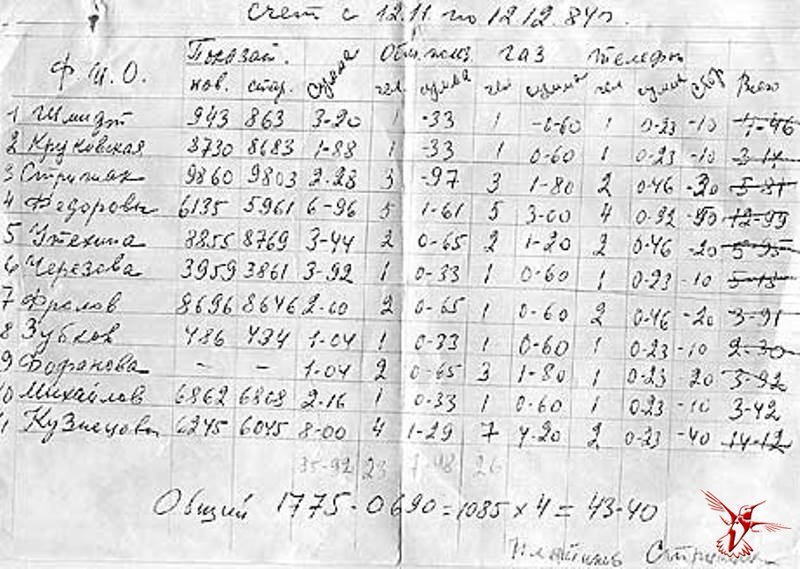 Счет с 12.11 по 12 12.84г.
Показат. Общ. польз. газ телефон
Ф. И. О. нов. стар. сумма чел. сумма чел сумма чел сумма сбор Всего
1 Шмидт 943 863 3-20 1 -33 1 -0-60 1 0-23 -10
2 Круковская 8730 8683 1-88 1 -33 1 0-60 1 0-23 -10 3-14
3 Стрижак 9860 9803 2-28 3 -97 3 1-80 2 0-46 -30 5-81
4 Федоровы 6135 5961 6-96 5 1-61 5 3-00 4 0-92 -50 12-99
5 Утехина 8855 8769 3-44 2 0-65 2 1-20 2 0-46 -20 5-95
6 Черезова 3959 3861 3-92 1 0-33 1 0-60 1 0-23 -10
7 Фролов 8696 8646 2-00 2 0-65 1 0-60 2 0-46 -20 3-91
8 Зубков 486 434 1-04 1 0-33 1 0-60 1 0-23 -10 2-30
9 - - 1-04 2 0-65 3 1-80 1 0-23 -20 3-92
10 Михайлов 6862 6808 2-16 1 0-33 1 0-60 1 0-23 -10 3-42
11 Кузнецовы 6245 6045 8-00 4 1-29 7 4-20 2 0-23 -40 14-12
35-92 23 7-48 26
Общий 1775-0690=1085×4=43-40